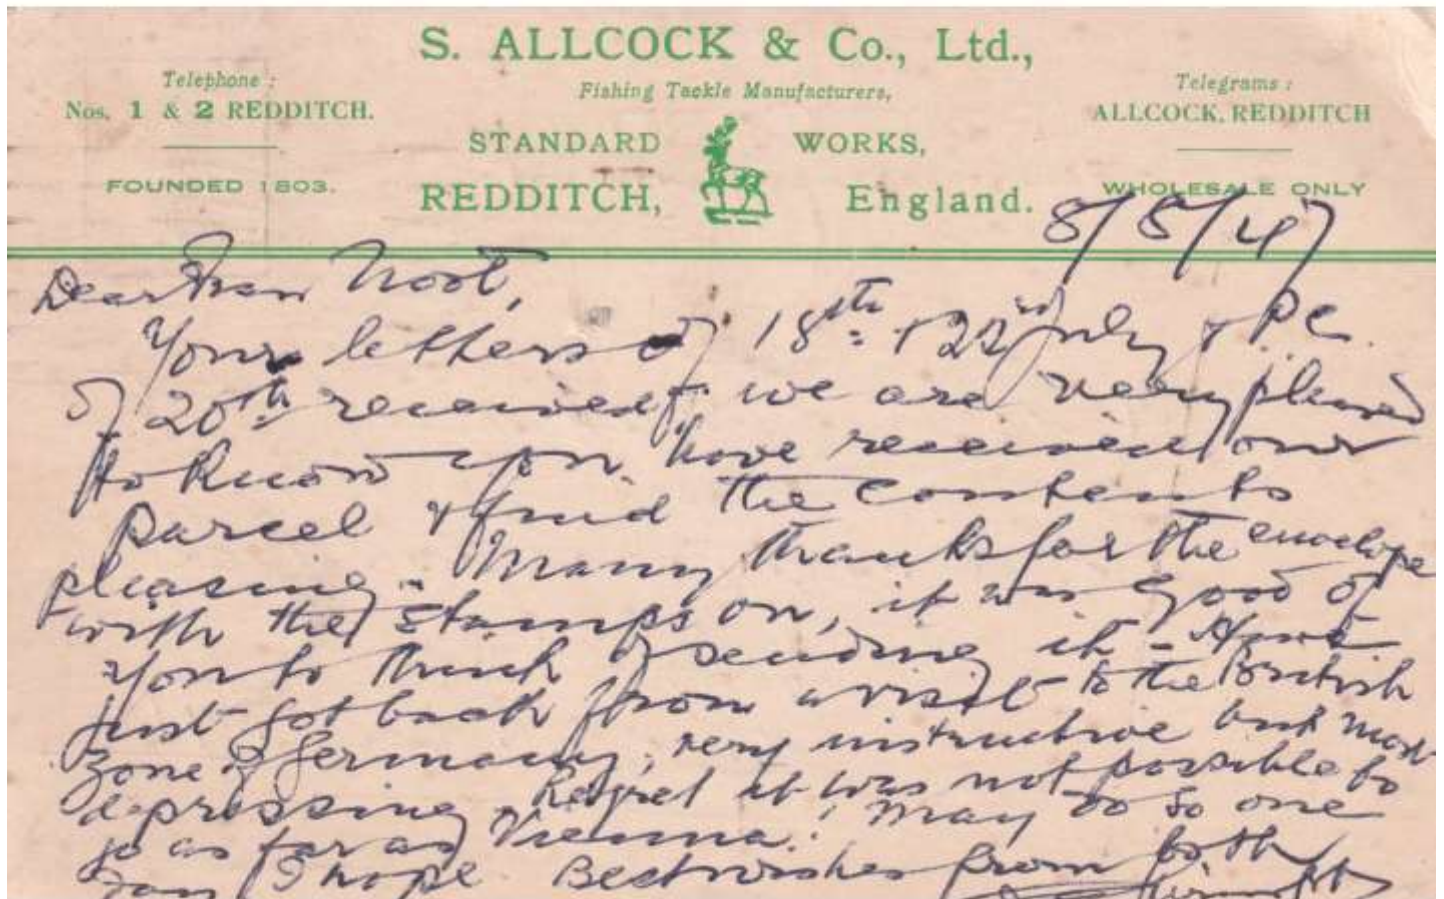 S. ALLCOCK & Co., Ltd.,
Fishing Tackle Manufacturers,
Telephone :
Nos. 1 & 2 REDDITCH.
FOUNDED 1803.
STANDARD WORKS,
REDDITCH, England.
Telegrams :
ALLCOCK, REDDITCH
WHOLESALE ONLY
8/8/47
Dear Frau
Your letters of 18th & 22nd July & P.C.
of 20th received, we are very pleased
to know you have received our
parcel & find the contents
pleasing. Many thanks for the envelope
with the stamps on, it was good of
you to think of sending it - Have
just got back from a visit to the British
Zone of Germany, very instructive but most
depressing. Regret it was not possible to
go as far as Vienna. May do so one
day I hope Best wishes from both